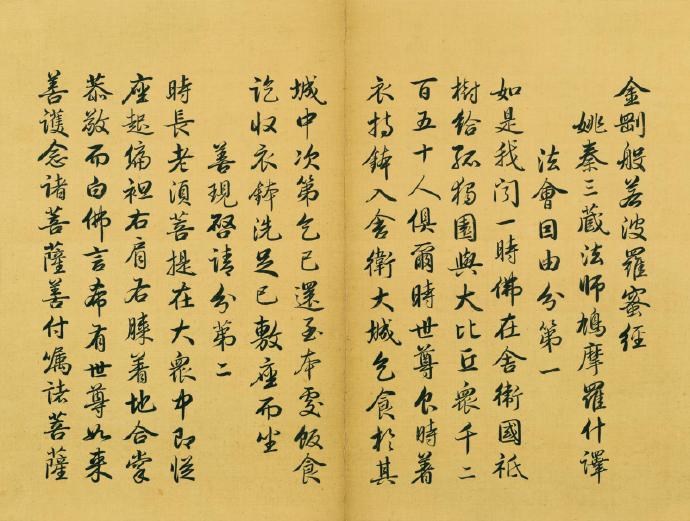 金剛般若波羅蜜經
姚秦三藏法師鳩摩羅什譯
法會因由分第一
如是我聞一時佛在舍衛國祇
樹給孤獨園與大比丘眾千二
百五十人俱爾時世尊食時著
衣持鉢入舍衛大城乞食於其
城中次第乞已還至本處飯食
訖收衣鉢洗足已敷座而坐
善現啓請分第二
時長老須菩提在大眾中即從
座起偏袒右肩右膝着地合掌
恭敬而白佛言希有世尊如來
善護念諸菩薩善付囑諸菩薩